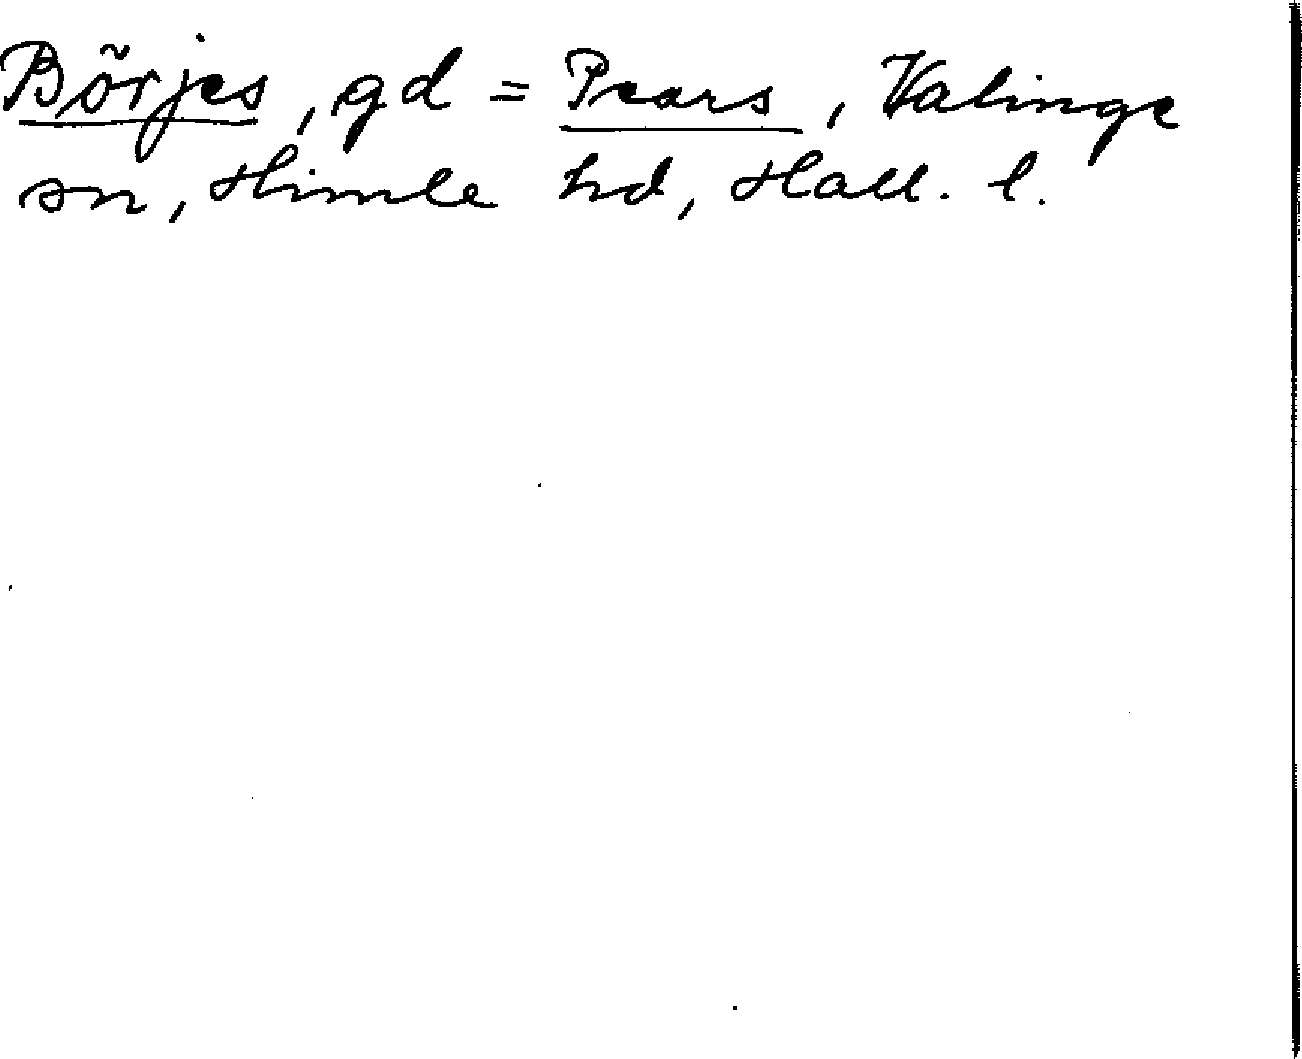 Börjes, gd = Pears, Valinge
sn, Himle hd, Hall. l.